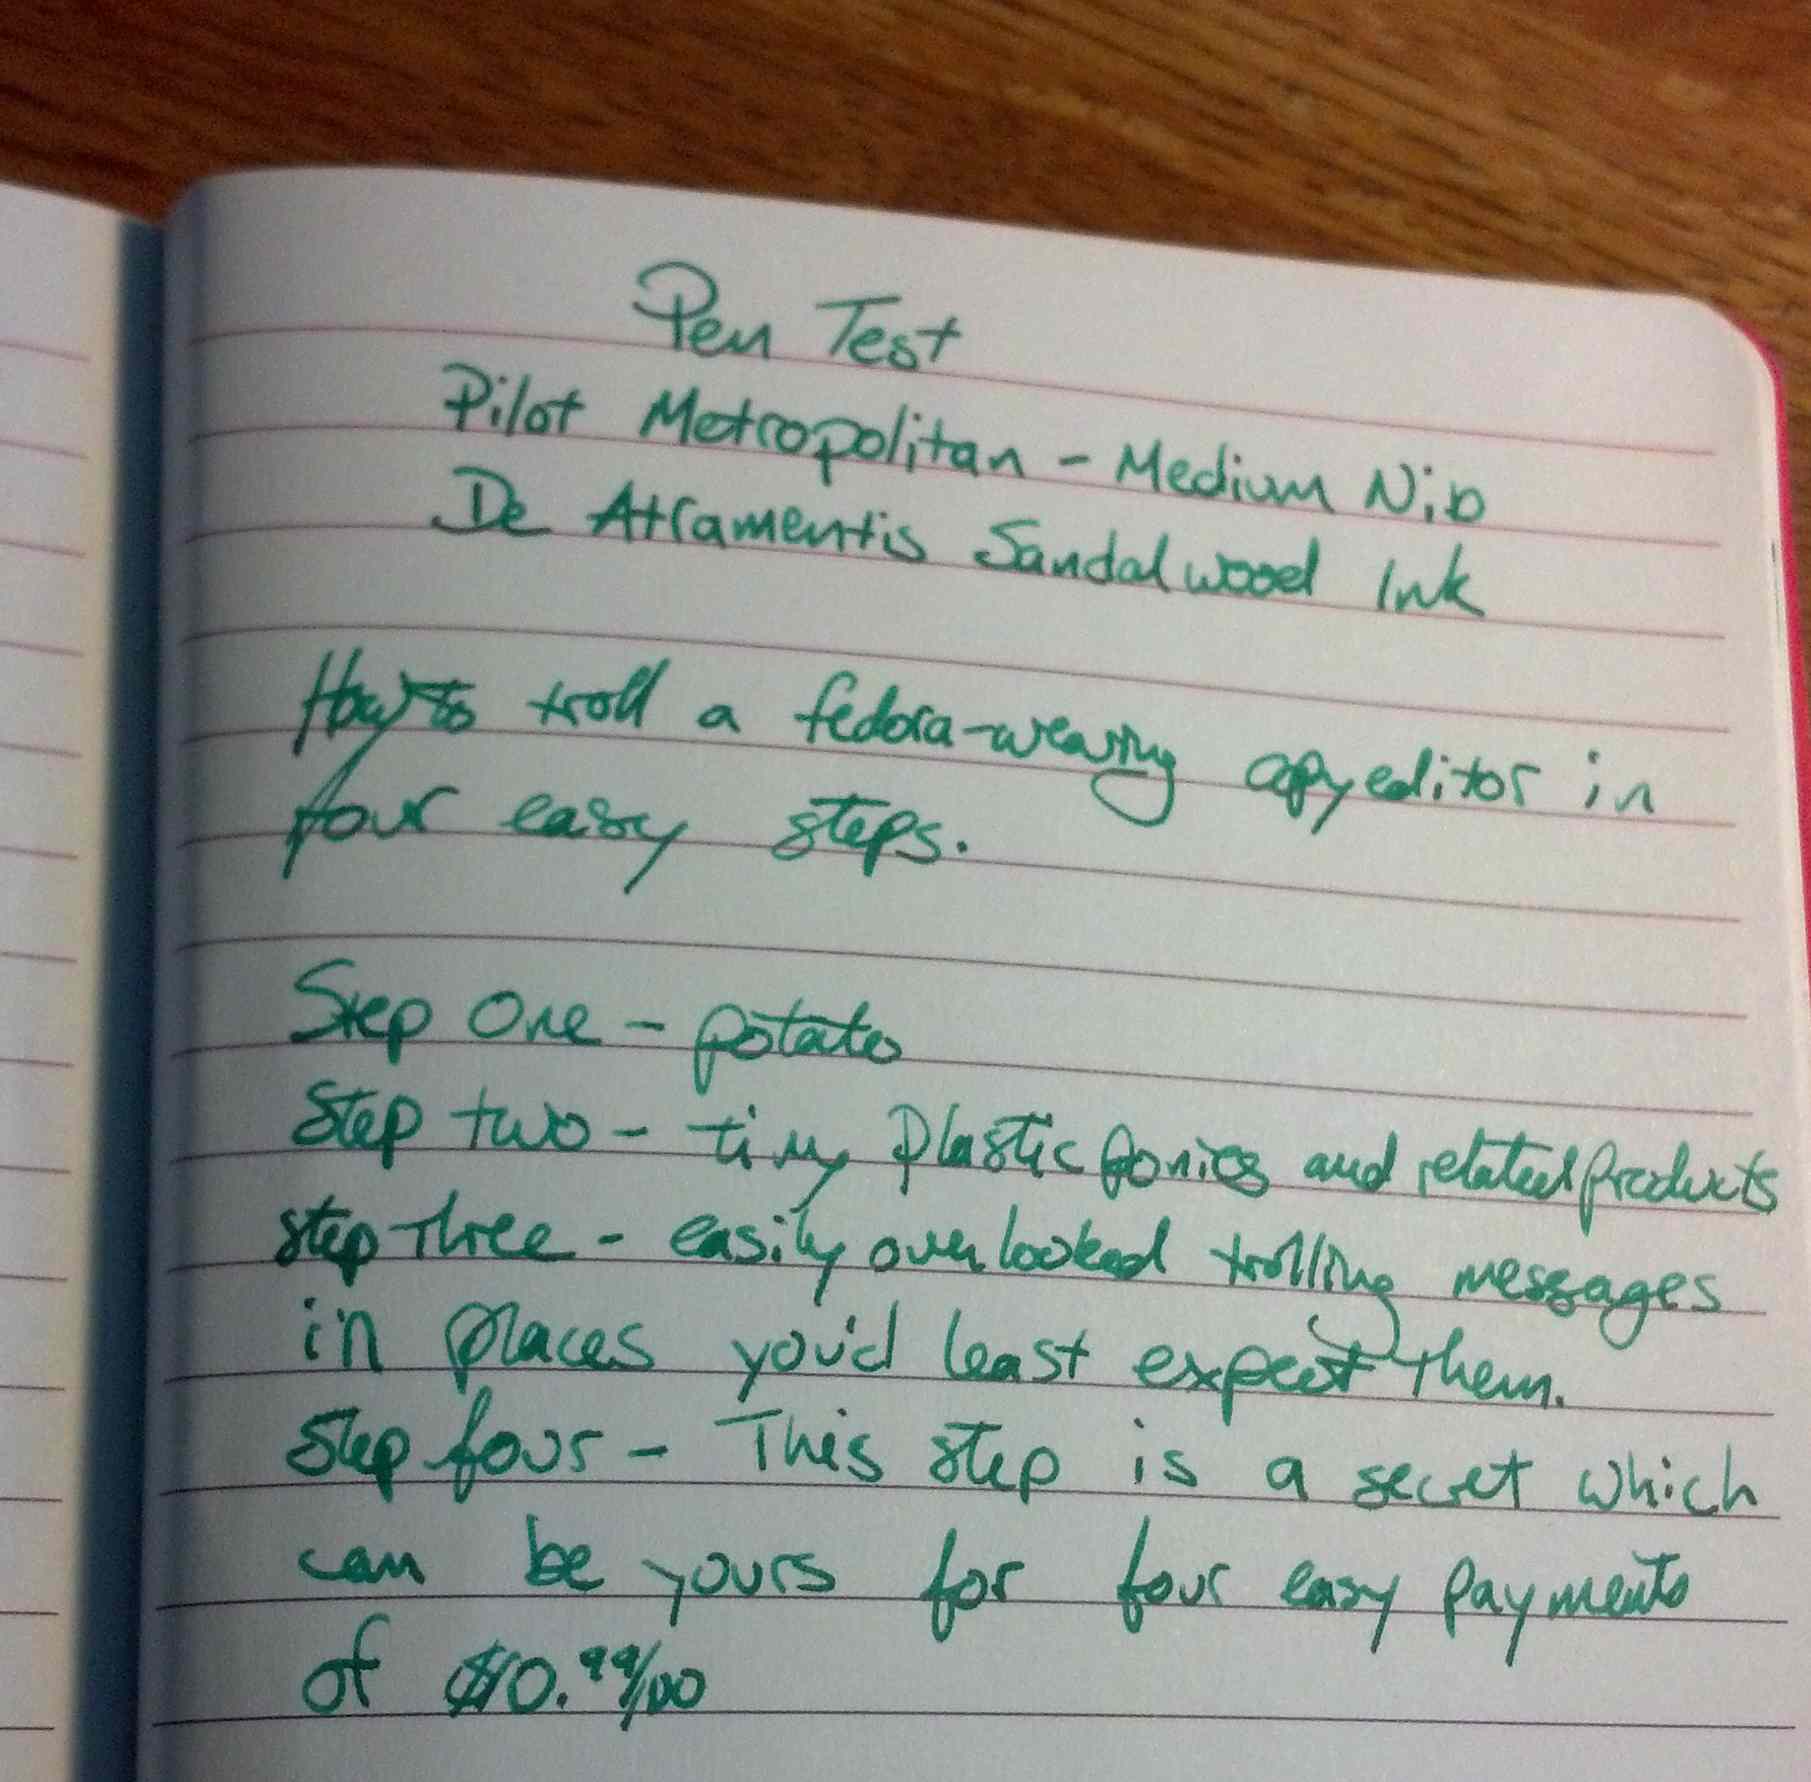 Pen Test
Pilot Metropolitan - Medium Nib
De Atramentis Sandalwood Ink
How to troll a fedora-wearing copyeditor in
four easy steps.
Step One - potato
Step two - tiny plastic ponies and related products
step three - easily overlooked trolling messages
in places you'd least expect them.
Step four - This step is a secret which
can be yours for four easy payments
of $10.99/00